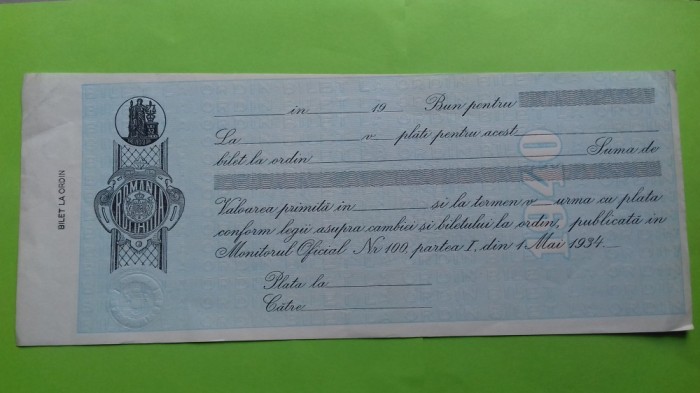 BILET LA ORDIN
ROMANIA
____________ in ________ 19__ Bun pentru
La ____________ v__ plăti pentru acest ____________
bilet la ordin ____________ Suma de
Valoarea primită in ________ si la termen v__ urma cu plata
conform legii asupra cambiei și biletului la ordin, publicată in
Monitorul Oficial Nr 100, partea I, din 1 Mai 1934.
Plata la ____________
Către ____________
1940